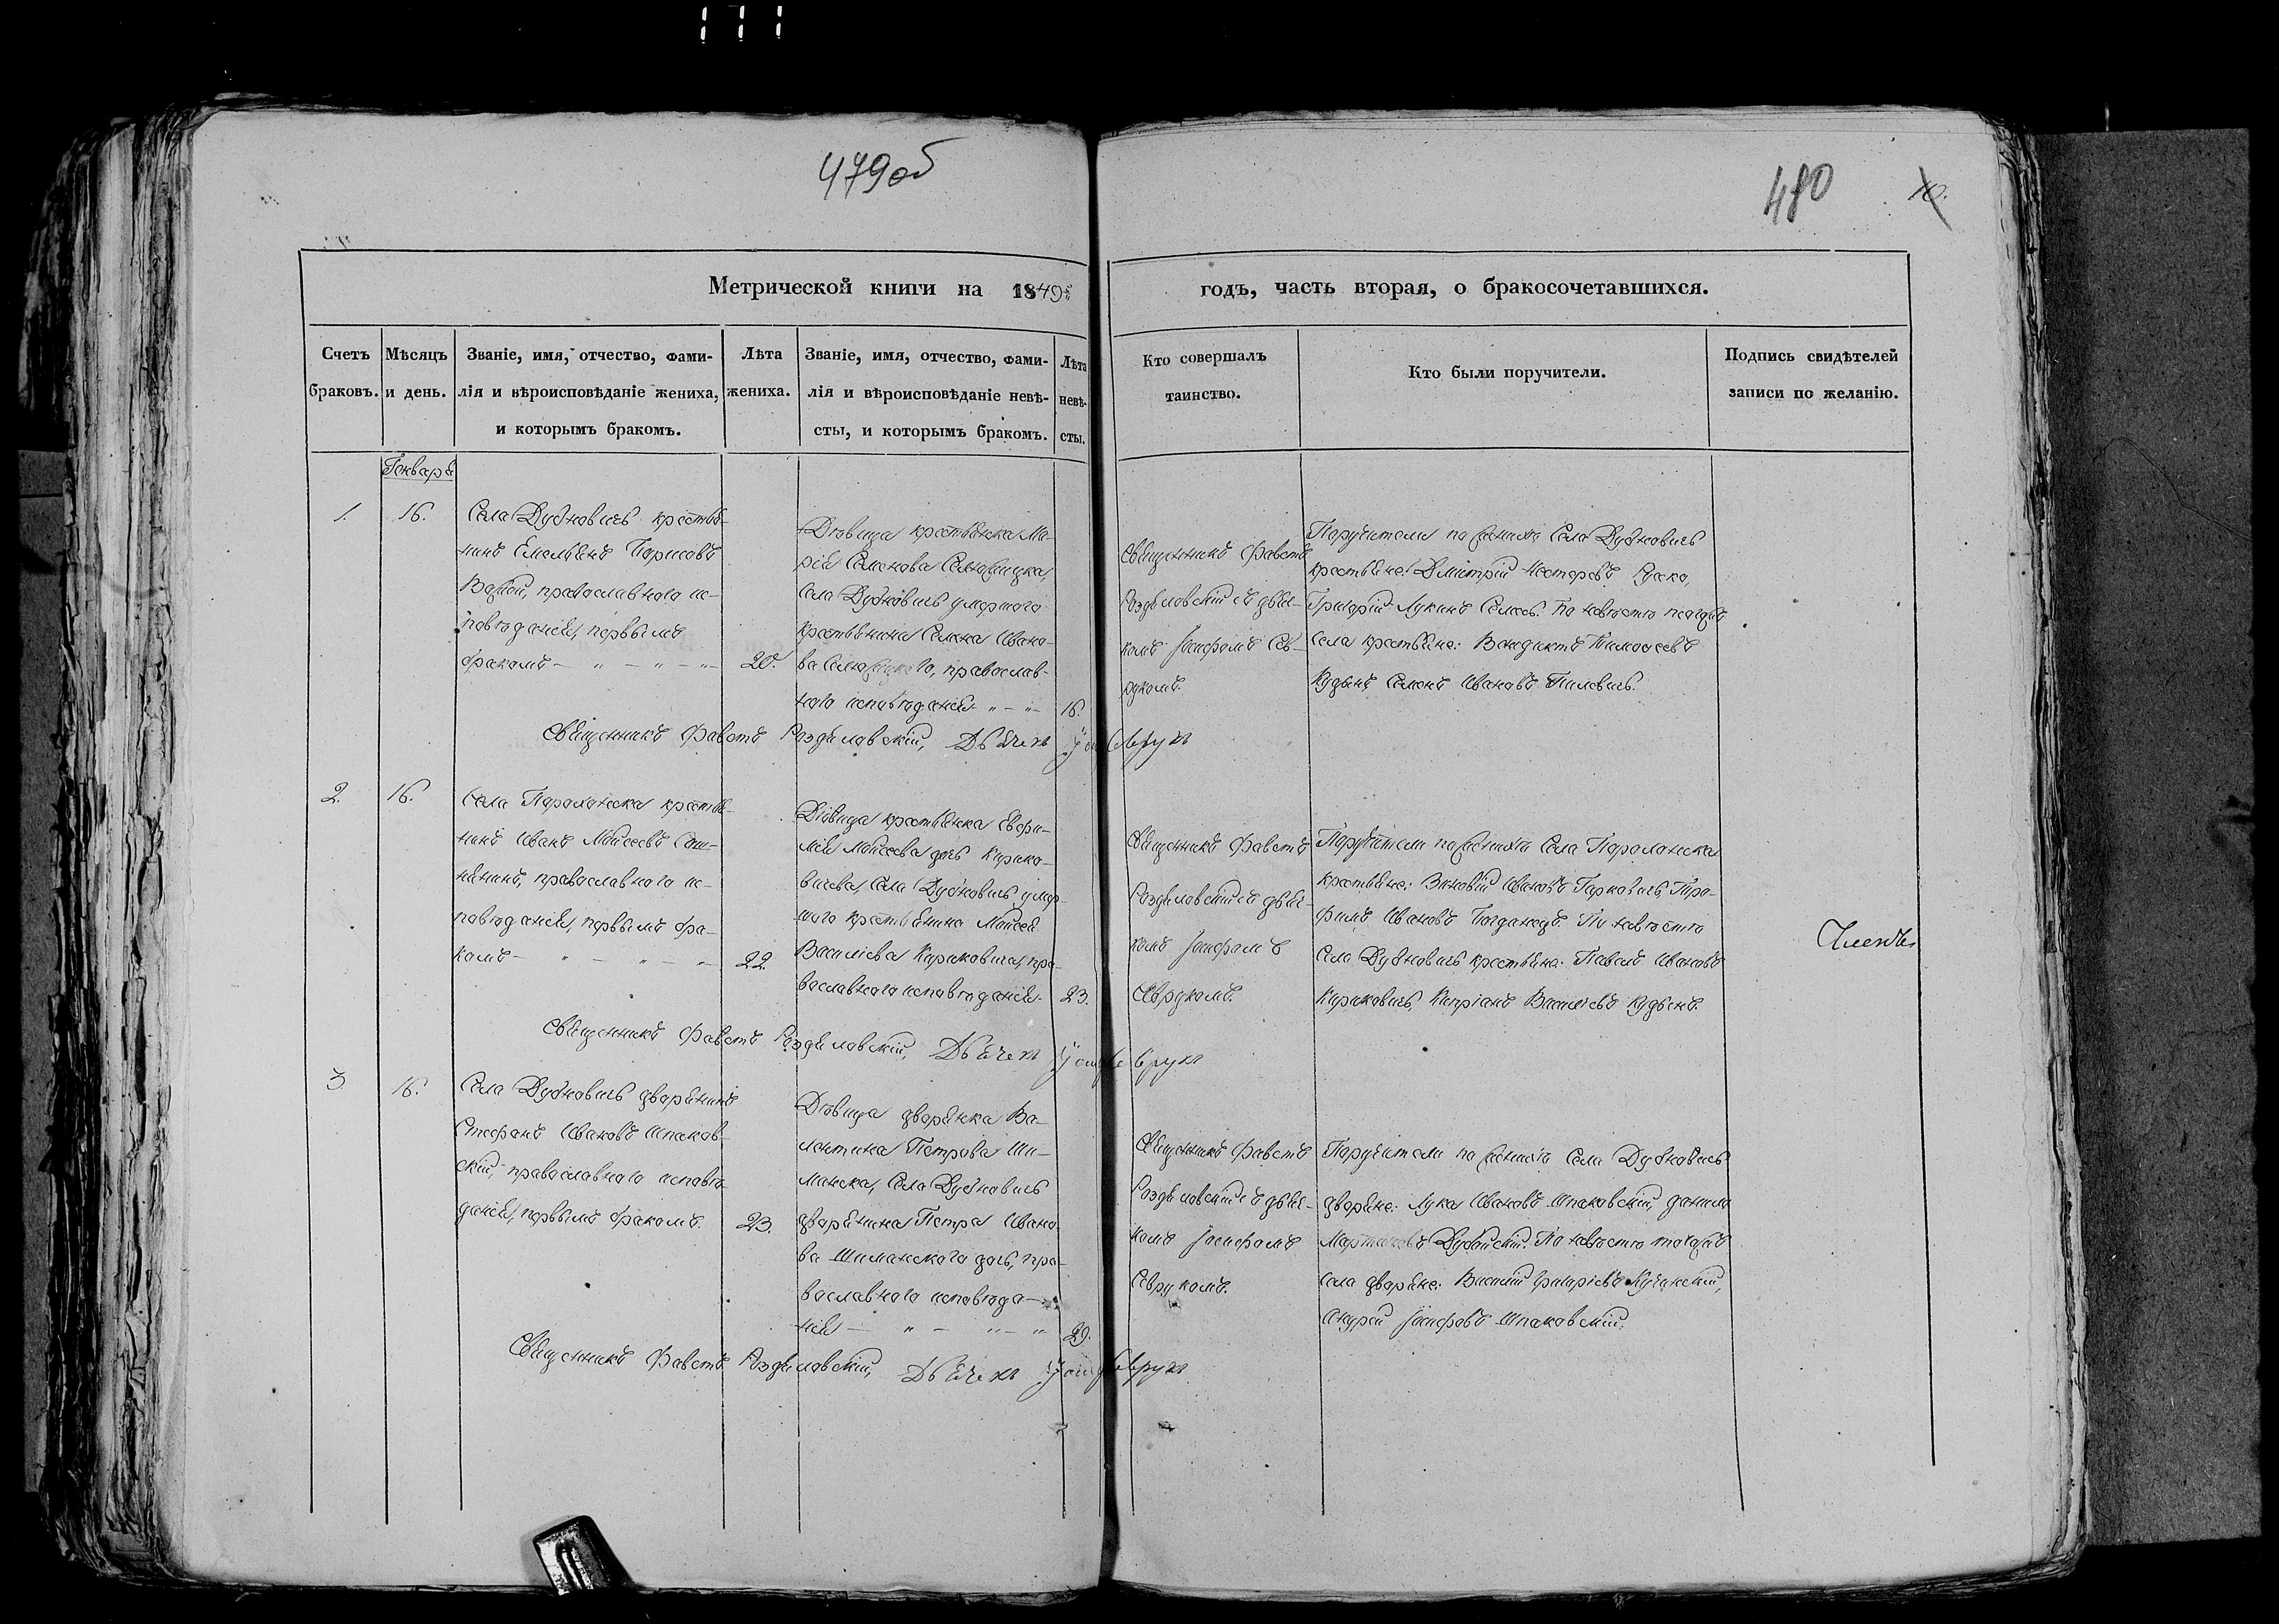 479об
480
10.
Метрической книги на 1849й
годъ, часть вторая, о бракосочетавшихся.
Счетъ браковъ.
Мѣсяцъ и день.
Званіе, имя, отчество, фами-
лія и вѣроисповѣданіе жениха,
и которымъ бракомъ.
Лѣта
жениха.
Званіе, имя, отчество, фами-
лія и вѣроисповѣданіе невѣ-
сты, и которымъ бракомъ.
Лѣта
невѣ-
сты.
Кто совершалъ
таинство.
Кто были поручители.
Подпись свидѣтелей
записи по желанію.
Генваря
1.
16.
Села Дубновичь крестья-
нинъ Емельянъ Борисовъ
православнаго ис-
повѣданія, первымъ
бракомъ
20.
Дѣвица крестьянка Ма-
рія Семенова
села Дубновичь умершаго
крестьянина Семена Ивано-
ва православ-
наго исповѣданія
16.
Священникъ Фавстъ
Раздяловскій съ дьяч-
комъ Іосифомъ Сев-
рукомъ.
Поручители по женихѣ села Дубновичь
крестьяне: Дмитрій Несторовъ
Григорій Лукинъ По невѣстѣ тогожъ
села крестьяне: Венедиктъ Тимофеевъ
Кудынъ Семенъ Ивановъ
Священникъ Фавстъ Раздяловскій, Дьячекъ Іосифъ Севрукъ
2.
16.
Села Парахонска крестья-
нинъ Иванъ Моисеевъ
православнаго ис-
повѣданія, первымъ бра-
комъ
22.
Дѣвица крестьянка Евфи-
мія Моисеева дочь Кирико-
вичева, села Дубновичь умер-
шаго крестьянина Моисея
Василіева Кириковича, пра-
вославнаго исповѣданія.
23.
Священникъ Фавстъ
Раздяловскій съ дьяч-
комъ Іосифомъ
Севрукомъ.
Поручители по женихѣ села Парахонска
крестьяне: Зиновій Ивановъ Гарковичь, Тро-
фимъ Ивановъ Богданецъ. По невѣстѣ
села Дубновичь крестьяне: Павелъ Ивановъ
Кириковичь, Кипріанъ Василіевъ Кудынъ.
Священникъ Фавстъ Раздяловскій, Дьячекъ Іосифъ Севрукъ
3
16.
Села Дубновичь дворянинъ
Стефанъ Ивановъ Шпаков-
скій, православнаго исповѣ-
данія, первымъ бракомъ.
23.
Дѣвица дворянка Ва-
лентина Петрова Ши-
манска, села Дубновичь
дворянина Петра Ивано-
ва Шиманского дочь, пра-
вославнаго исповѣда-
нія
29.
Священникъ Фавстъ
Раздяловскій съ дьяч-
комъ Іосифомъ
Севрукомъ.
Поручители по женихѣ села Дубновичь
дворяне: Лука Ивановъ Шпаковскій, Данило
Мартиновъ Дубойскій. По невѣстѣ тогожъ
села дворяне: Василій Григоріевъ Кучинскій,
Андрей Іосифовъ Шпаковскій.
Священникъ Фавстъ Раздяловскій, Дьячекъ Іосифъ Севрукъ